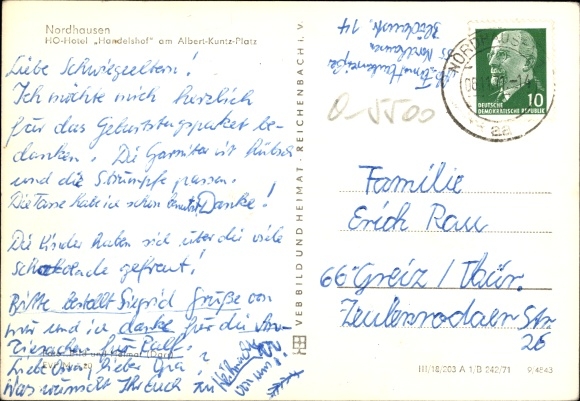 Nordhausen
HO-Hotel „Handelshof" am Albert-Kuntz-Platz
Liebe Schwiegereltern!
Ich möchte mich herzlich
für das Geburtstagspaket be-
danken. Die Garnitur ist hübsch
und die Strümpfe passen.
Die Tasse habe ich schon benutzt, Danke!
Die Kinder haben sich über die viele
Schokolade gefreut!
Bitte bestellt Sigrid Grüße von
mir und ich danke für die An-
ziesachen für Ralf.
Liebe Oma, lieber Opa!
Was wünscht Ihr Euch zu
Weihnachten
von uns?
VEB BILD UND HEIMAT · REICHENBACH I. V.
55 Nordhausen
14
O-5500
NORDHAUSEN
DEUTSCHE
DEMOKRATISCHE REPUBLIK
10
Familie
Erich Rau
66 Greiz / Thür.
Zeulenrodaer Str.
26
III/18/203 A 1/B 242/71
9/4843